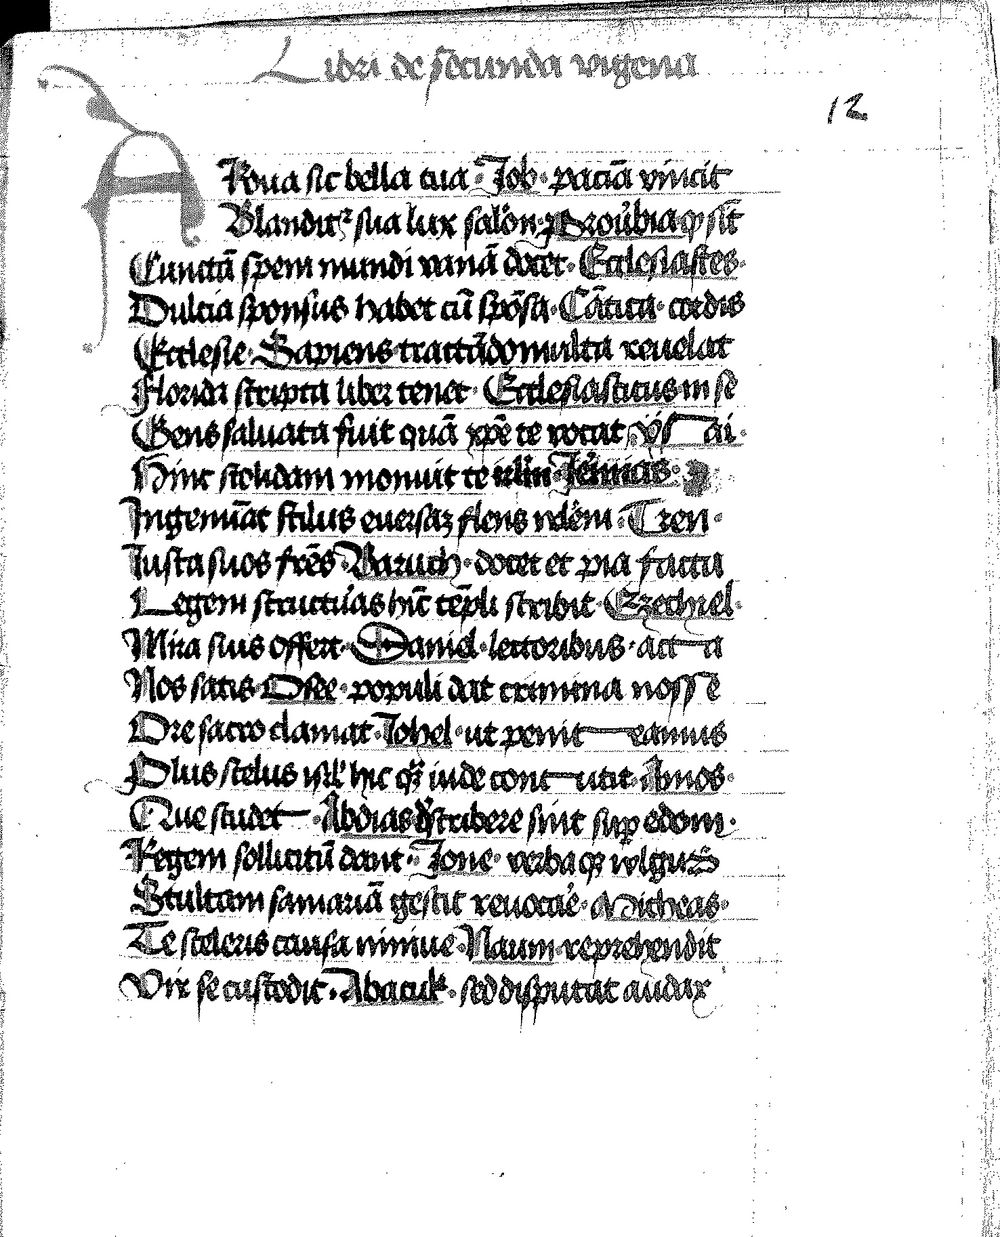 Libri de secunda vigena
12
Aroua sic bella tua · Job · paciā vincit
Blandit᷑ sua lux salōn · Prouʼbia ꝙ sit
Cunctā spem mundi vanā docet · Ecclesiastes ·
Dulcia sponsus habet cū spōsa · Cātica · cordis
Ecclesie · Sapiens · tractādo multa reuelat
Florida scripta liber tenet · Ecclesiasticus in se
Gens saluata fuit quā xp̄e te vocat ys ai ·
Hinc stolidam monuit te irl̄m · Jeʼmias ·
Ingemīat stilus euersaꝫ flens · Tren ·
Iusta suos fr̄es · Baruch · docet et pia facta
Legem structuʼas hīc tēpli scribit · Ezechiel ·
Mira suis offert · Daniel · lectoribus · acta
Nos satis · Osee · populi dat crimina nosse
Ore sacro clamat · Johel · ut peniteamus
Plus scelus isrl̄ hic qꝫ iude cont utit · Amos ·
Que studet · Abdias · dʼscribere sint suꝑ edom ·
Regem sollicitū dant · Jone · verba qꝫ wlgus
Stultam samariā gestit reuocaʼe · Micheas ·
Te sceleris causa niniue · Naum · reprehendit
Vir se custodit · Abacuk · sed disputat audax